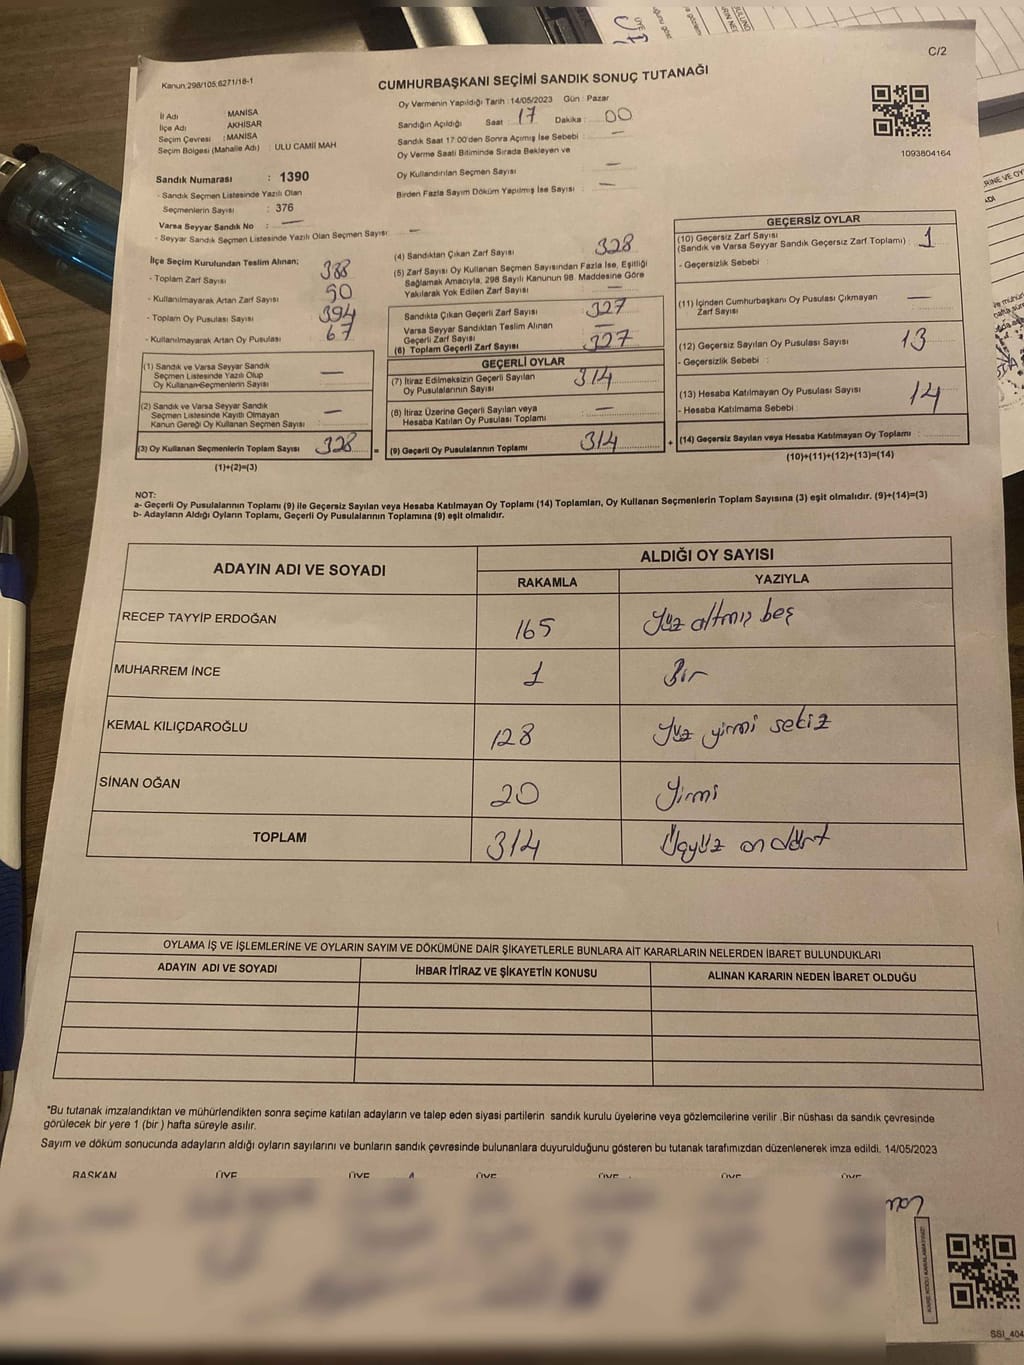 C/2
Kanun:298/105,6271/18-1
CUMHURBAŞKANI SEÇİMİ SANDIK SONUÇ TUTANAĞI
Oy Vermenin Yapıldığı Tarih : 14/05/2023 Gün : Pazar
İl Adı : MANİSA
İlçe Adı : AKHİSAR
Seçim Çevresi : MANİSA
Seçim Bölgesi (Mahalle Adı) : ULU CAMİİ MAH
Sandığın Açıldığı Saat : 17 Dakika : 00
Sandık Saat 17:00'den Sonra Açılmış İse Sebebi : —
Oy Verme Saati Bitiminde Sırada Bekleyen ve
Oy Kullandırılan Seçmen Sayısı : —
Birden Fazla Sayım Döküm Yapılmış İse Sayısı : —
1093804164
Sandık Numarası : 1390
- Sandık Seçmen Listesinde Yazılı Olan
Seçmenlerin Sayısı : 376
Varsa Seyyar Sandık No : —
- Seyyar Sandık Seçmen Listesinde Yazılı Olan Seçmen Sayısı : —
İlçe Seçim Kurulundan Teslim Alınan;
- Toplam Zarf Sayısı : 388
- Kullanılmayarak Artan Zarf Sayısı : 90
- Toplam Oy Pusulası Sayısı : 394
- Kullanılmayarak Artan Oy Pusulası : 67
(1) Sandık ve Varsa Seyyar Sandık
Seçmen Listesinde Yazılı Olup
Oy Kullanan Seçmenlerin Sayısı : —
(2) Sandık ve Varsa Seyyar Sandık
Seçmen Listesinde Kayıtlı Olmayan
Kanun Gereği Oy Kullanan Seçmen Sayısı : —
(3) Oy Kullanan Seçmenlerin Toplam Sayısı : 328
(1)+(2)=(3)
(4) Sandıktan Çıkan Zarf Sayısı : 328
(5) Zarf Sayısı Oy Kullanan Seçmen Sayısından Fazla İse, Eşitliği
Sağlamak Amacıyla, 298 Sayılı Kanunun 98. Maddesine Göre
Yakılarak Yok Edilen Zarf Sayısı : —
Sandıkta Çıkan Geçerli Zarf Sayısı : 327
Varsa Seyyar Sandıktan Teslim Alınan
Geçerli Zarf Sayısı : —
(6) Toplam Geçerli Zarf Sayısı : 327
GEÇERLİ OYLAR
(7) İtiraz Edilmeksizin Geçerli Sayılan
Oy Pusulalarının Sayısı : 314
(8) İtiraz Üzerine Geçerli Sayılan veya
Hesaba Katılan Oy Pusulası Toplamı : —
(9) Geçerli Oy Pusulalarının Toplamı : 314
GEÇERSİZ OYLAR
(10) Geçersiz Zarf Sayısı
(Sandık ve Varsa Seyyar Sandık Geçersiz Zarf Toplamı) : 1
- Geçersizlik Sebebi :
(11) İçinden Cumhurbaşkanı Oy Pusulası Çıkmayan
Zarf Sayısı : —
(12) Geçersiz Sayılan Oy Pusulası Sayısı : 13
- Geçersizlik Sebebi :
(13) Hesaba Katılmayan Oy Pusulası Sayısı : 14
- Hesaba Katılmama Sebebi :
(14) Geçersiz Sayılan veya Hesaba Katılmayan Oy Toplamı :
(10)+(11)+(12)+(13)=(14)
NOT:
a- Geçerli Oy Pusulalarının Toplamı (9) ile Geçersiz Sayılan veya Hesaba Katılmayan Oy Toplamı (14) Toplamları, Oy Kullanan Seçmenlerin Toplam Sayısına (3) eşit olmalıdır. (9)+(14)=(3)
b- Adayların Aldığı Oyların Toplamı, Geçerli Oy Pusulalarının Toplamına (9) eşit olmalıdır.
ADAYIN ADI VE SOYADI
ALDIĞI OY SAYISI
RAKAMLA YAZIYLA
RECEP TAYYİP ERDOĞAN 165 Yüz altmış beş
MUHARREM İNCE 1 Bir
KEMAL KILIÇDAROĞLU 128 Yüz yirmi sekiz
SİNAN OĞAN 20 Yirmi
TOPLAM 314 Üçyüz on dört
OYLAMA İŞ VE İŞLEMLERİNE VE OYLARIN SAYIM VE DÖKÜMÜNE DAİR ŞİKAYETLERLE BUNLARA AİT KARARLARIN NELERDEN İBARET BULUNDUKLARI
ADAYIN ADI VE SOYADI İHBAR İTİRAZ VE ŞİKAYETİN KONUSU ALINAN KARARIN NEDEN İBARET OLDUĞU
*Bu tutanak imzalandıktan ve mühürlendikten sonra seçime katılan adayların ve talep eden siyasi partilerin sandık kurulu üyelerine veya gözlemcilerine verilir .Bir nüshası da sandık çevresinde
görülecek bir yere 1 (bir ) hafta süreyle asılır.
Sayım ve döküm sonucunda adayların aldığı oyların sayılarını ve bunların sandık çevresinde bulunanlara duyurulduğunu gösteren bu tutanak tarafımızdan düzenlenerek imza edildi. 14/05/2023
BAŞKAN ÜYE ÜYE ÜYE ÜYE ÜYE ÜYE
KARE KODU KARALAMAYINIZ!
SSİ_404